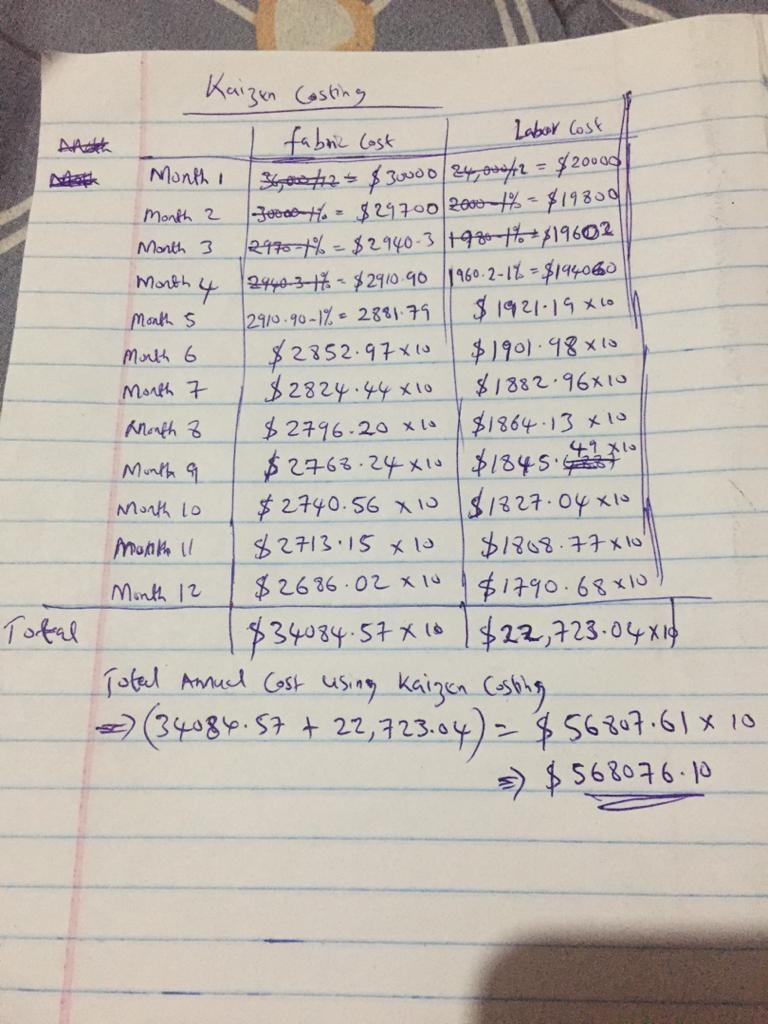 Kaizen Costing
fabric cost Labor cost
Month 1 36,000/12 = $30000 24,000/12 = $20000
Month 2 30000-1% = $29700 2000-1% = $19800
Month 3 2970-1% = $2940.3 1980-1% = $19602
Month 4 2940.3-1% = $2910.90 1960.2-1% = $194060
Month 5 2910.90-1% = 2881.79 $1921.19 x10
Month 6 $2852.97x10 $1901.98 x10
Month 7 $2824.44x10 $1882.96x10
Month 8 $2796.20 x10 $1864.13 x10
Month 9 $2768.24x10 $1845.49 x10
Month 10 $2740.56 x10 $1827.04x10
Month 11 $2713.15 x10 $1808.77x10
Month 12 $2686.02 x10 $1790.68x10
Total $34084.57 x10 $22,723.04x10
Total Annual Cost using Kaizen Costing
=> (34084.57 + 22,723.04) = $56807.61 x 10
=> $568076.10